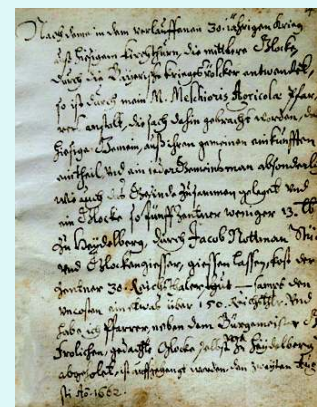 Nach deme in dem verlauffenen 30. jährigen Krieg
auß hiesigem Kirchthurn, die mittlere Glocke
durch die Bayerische kriegsvölcker entwendet,
so ist durch mein M. Melchioris Agricolæ Pfar,
rers anstalt, die sach dahin gebracht worden, daß
hiesige Gemein, auß ihren gemeinen einkünfften
ein theil und ein ieder Gemeinsman absonderlich
wie auch die zusammen gelegt und
ein Glocke so fünff Zentner weniger 13. lb
zu Heydelberg, durch Jacob Rottman Stück
und Glockengiesser, giessen lassen, kost der
Zentner 30 Reichsthaler sampt den
uncosten ein etwas über 150. Reichsthlr. Und
habe ich Pfarrer, neben dem Bürgemeister
Frölichen, gedachte Glocke selbst zu Heydelberg
abgeholet, ist auffgehängt worden, den zweyten
Ao. 1662.